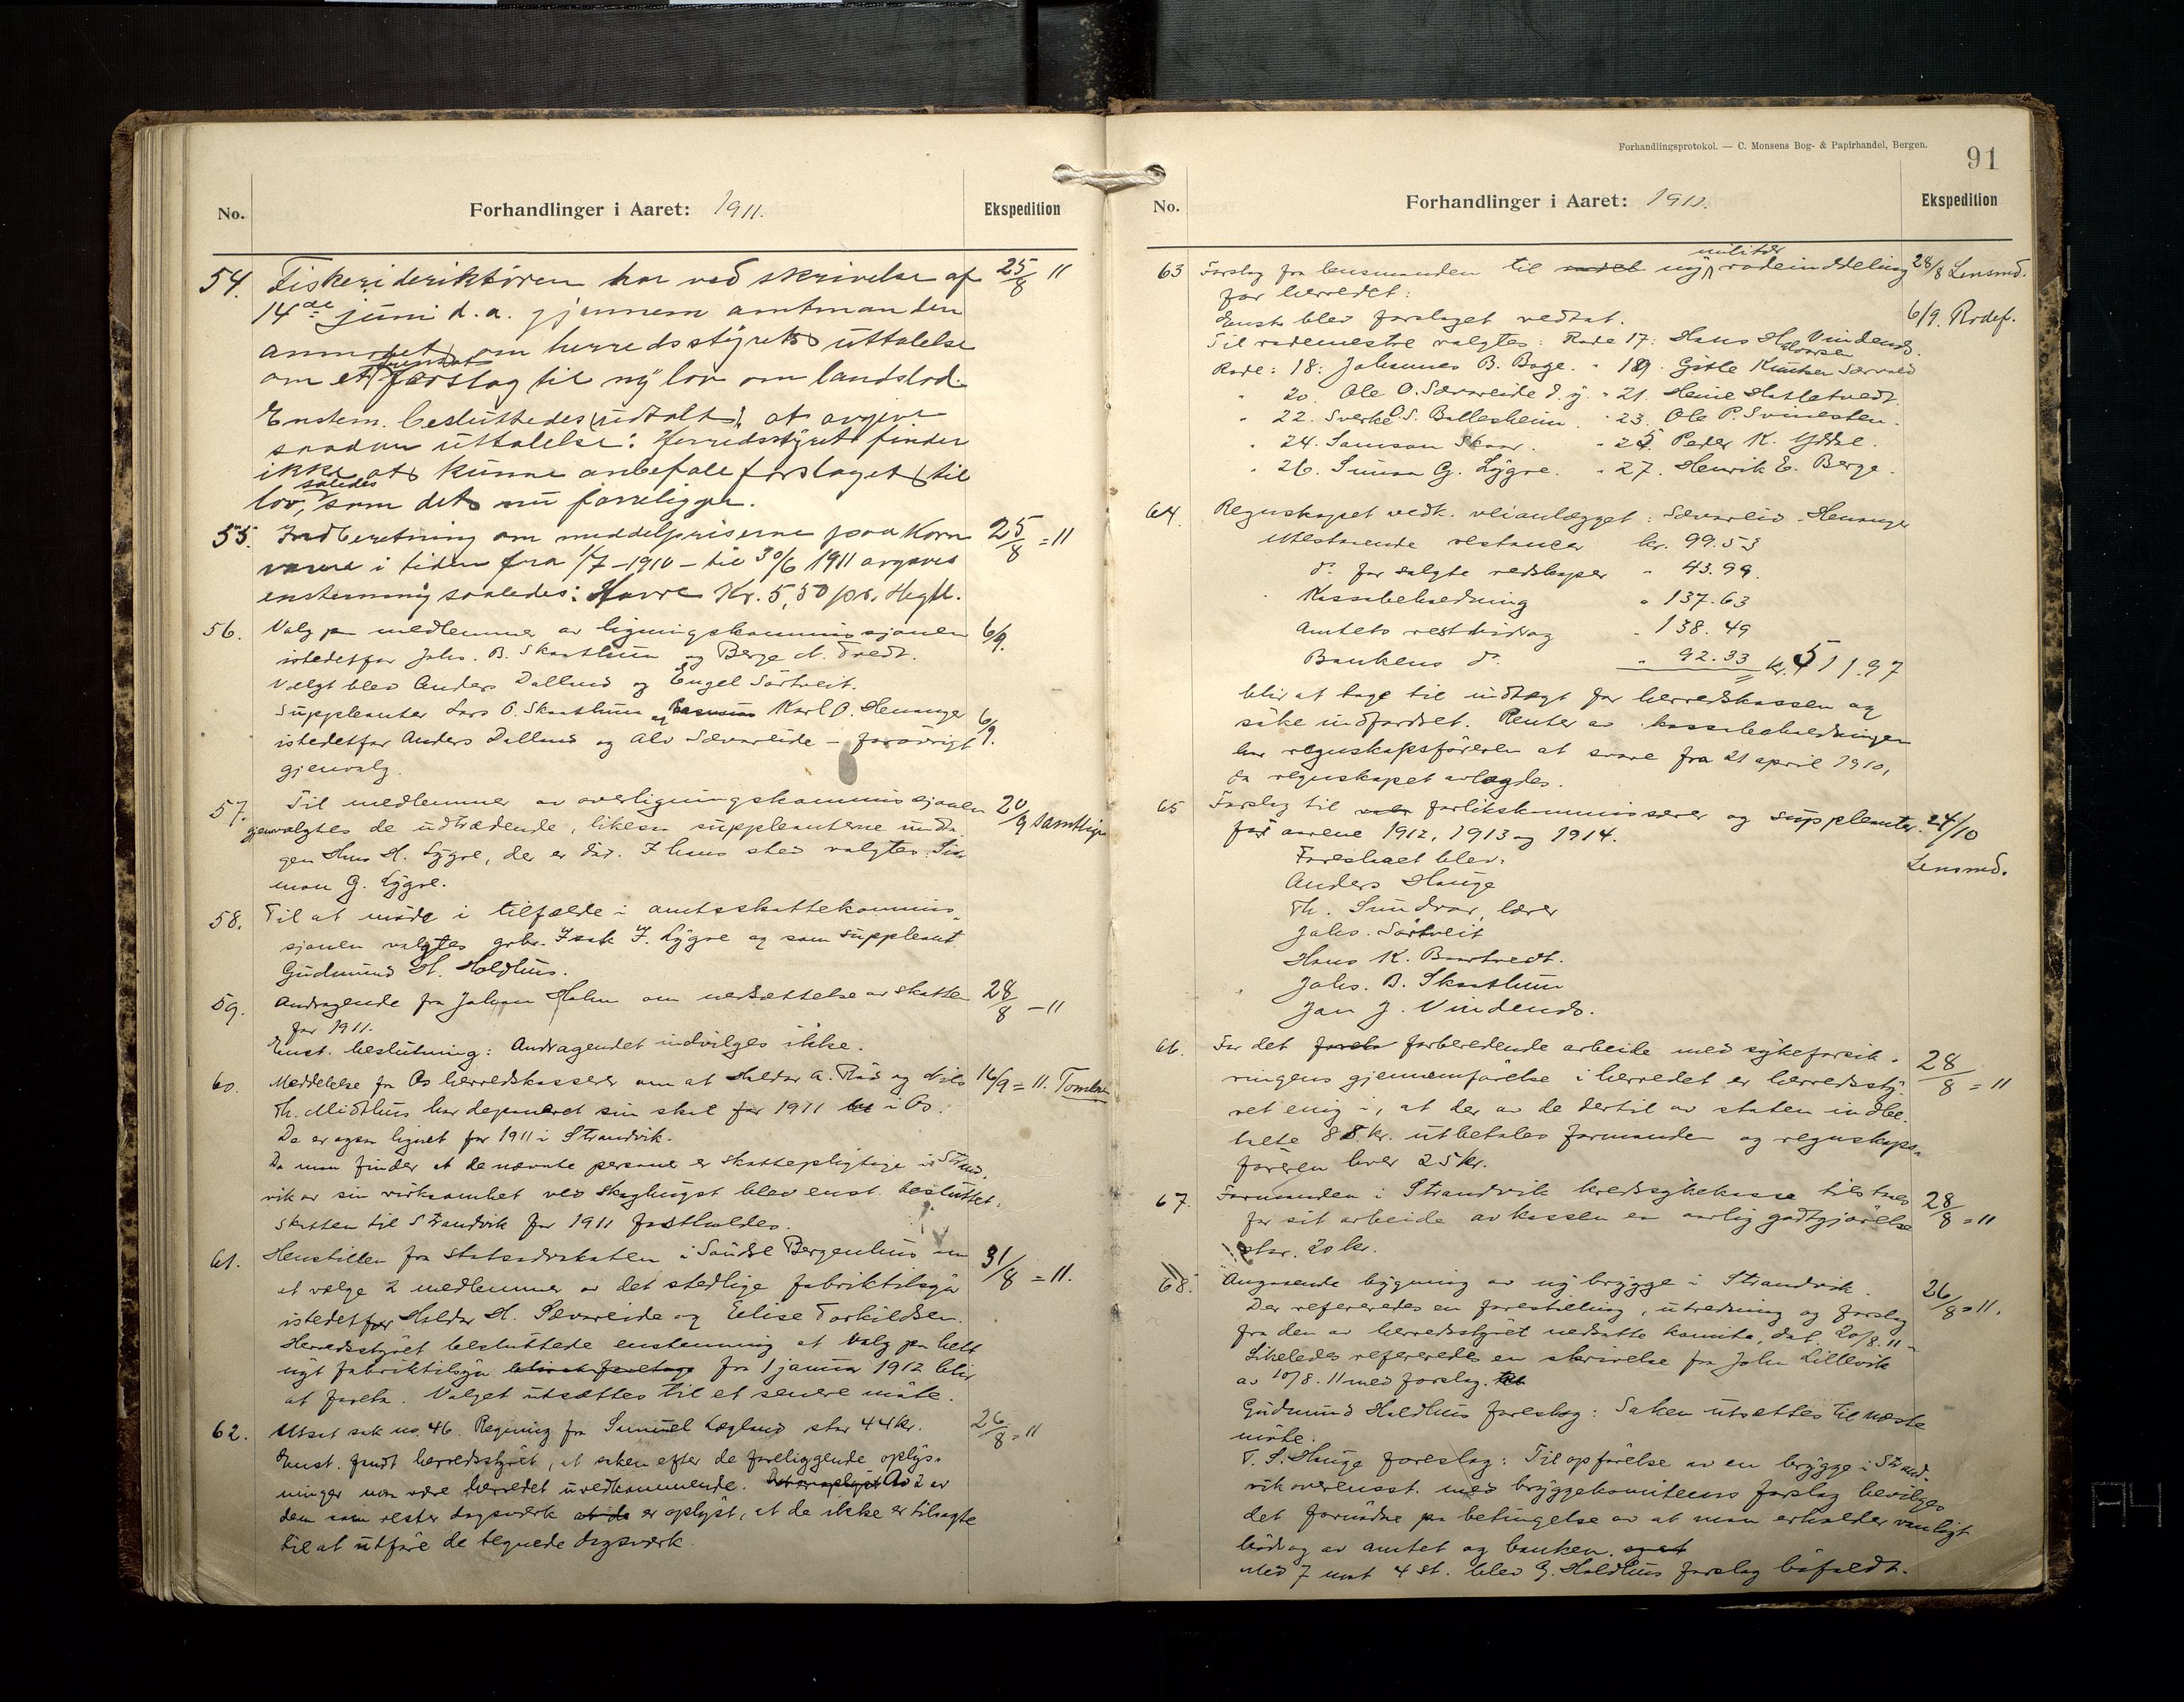 No.
Forhandlinger i Aaret: 1911.
Ekspedition
54. Fiskeridirektören har ved skrivelse af 25/8 11
14de juni d.a. gjennem amtmanden
anmodet om herredsstyrets uttalelse
om et forslag til ny lov om landslod.
Enstem. besluttedes (udtalt) at avgive
saadan uttalelse: Herredsstyret finder
ikke at kunne anbefale forslaget til
lov, saledes som det nu foreligger.
55. Indberetning om middelpriserne paa Korn 25/8 = 11
varer i tiden fra 1/7 - 1910 - til 30/6 1911 avgaves
enstemmig saaledes: Havre Kr. 5,50 pr. Hegtl.
56. Valg paa medlemmer av ligningskommissjonen 6/9.
istedetfor Johs. B. Skaathun og Berge N. Tvedt.
Valgt blev Anders Dallund og Engel Sörtveit.
Suppleanter Lars O. Skaathun og Karl O. Henanger 6/9.
istedetfor Anders Dallund og Alv Sævareide - forövrigt
gjenvalg.
57. Til medlemmer av overligningskommissjonen 20/9 samtlige
gjenvalgtes de udtrædende, likesaa suppleanterne undta-
gen Hans H. Lygre, der er död. I hans sted valgtes Si-
mon G. Lygre.
58. Til at möde i tilfælde i amtsskattekommis-
sjonen valgtes grbr. Isak J. Lygre og som suppleant
Gudmund H. Holdhus.
59. Andragende fra Johan Holm om nedsættelse av skatten 28/8 - 11
for 1911.
Enst. beslutning: Andragendet indvilges ikke.
60. Meddelelse fra Os herredskasserer om at Haldor A. Röd og Nils 16/9 = 11.
Th. Midthus har deponeret sin skat for 1911 i Os.
De er ogsaa lignet for 1911 i Strandvik.
Da man finder at de nævnte personer er skattepligtige i Strand-
vik av sin virksomhet ved Skoghugst blev enst. besluttet:
Skatten til Strandvik for 1911 fastholdes.
61. Henstillen fra Statsadvokaten i Söndre Bergenhus om 31/8 = 11.
at vælge 2 medlemmer av det stedlige fabriktilsyn
istedetfor Haldor H. Sævareide og Elise Torkildsen.
Herredsstyret besluttede enstemmig at valg paa helt
nyt fabriktilsyn fra 1 januar 1912 blir
at foreta. Valget utsættes til et senere möte.
62. Utsat sak no. 46. Regning fra Samuel Lægland stor 44 kr. 26/8 = 11
Enst. fandt herredsstyret, at saken efter de foreliggende oplys-
ninger maa være herredet uvedkommende. Av 2 av
dem som rester dagsverk er oplyst, at de ikke er tilsagte
til at utföre de tegnede dagsverk.
Forhandlingsprotokol. — C. Monsens Bog- & Papirhandel, Bergen.
91
No.
Forhandlinger i Aaret: 1911.
Ekspedition
63 Forslag fra lensmanden til ny militær rodeinddeling 28/8 Lensmd.
for herredet:
Enst. blev forslaget vedtat. 6/9. Rodef.
Til rodemestre valgtes: Rode 17: Hans H. Vindenes.
Rode: 18: Johannes B. Bage. " 19. Gitle Knutsen Sævareid
" 20. Ole O. Sævareide d.y. " 21. Heine Hatletvedt.
" 22. Sverke S. Ballesheim. " 23. Ole P. Svinesten.
" 24. Samson Skaar. " 25 Peder K. Ydstee.
" 26. Simon G. Lygre. " 27. Henrik E. Berge.
64. Regnskapet vedk. veianlægget: Sævareid - Henanger
Utestaaende restancer kr. 99.53
do. for solgte redskaper " 43.99.
Kassabeholdning " 137.63
Amtets restbidrag " 138.49
Bankens do. " 92.33 kr. 511.97
blir at tage til indtægt for herredskassen og
söke indfordret. Renter av kassabeholdningen
har regnskapsföreren at svare fra 21 april 1910,
da regnskapet avlagdes.
65 Forslag til forlikskommissærer og suppleanter 24/10
for aarene 1912, 1913 og 1914. Lensmd.
Foreslaaet blev:
Anders Hauge
Th. Sundvor, lærer
Johs. Sörtveit
Hans K. Bratvedt.
Johs. B. Skaathun
Jan J. Vindenes.
66. For det forberedende arbeide med sykeforsik- 28/8 = 11
ringens gjennemförelse i herredet er herredssty-
ret enig i, at der av de dertil av staten indbe-
talte 88 kr. utbetales formanden og regnskaps-
föreren hver 25 kr.
67. Formanden i Strandvik kredssykekasse tilstaaes 28/8 = 11
for sit arbeide av kassen en aarlig godtgjörelse
stor. 20 kr.
68. Angaaende bygning av ny brygge i Strandvik. 26/8 = 11.
Der refereredes en forestilling, utredning og forslag
fra den av herredsstyret nedsatte komite, dat. 20/8. 11 -
Likeledes refereredes en skrivelse fra John Lillevik
av 10/8. 11 med forslag.
Gudmund Holdhus foreslog: Saken utsættes til næste
möte.
T. S. Hauge foreslog: Til opförelse av en brygge i Strand-
vik overensst. med bryggekomiteens forslag bevilges
det fornödne paa betingelse av at man erholder vanligt
bidrag av amtet og banken.
Med 7 mot 4 st. blev G. Holdhus forslag bifaldt.